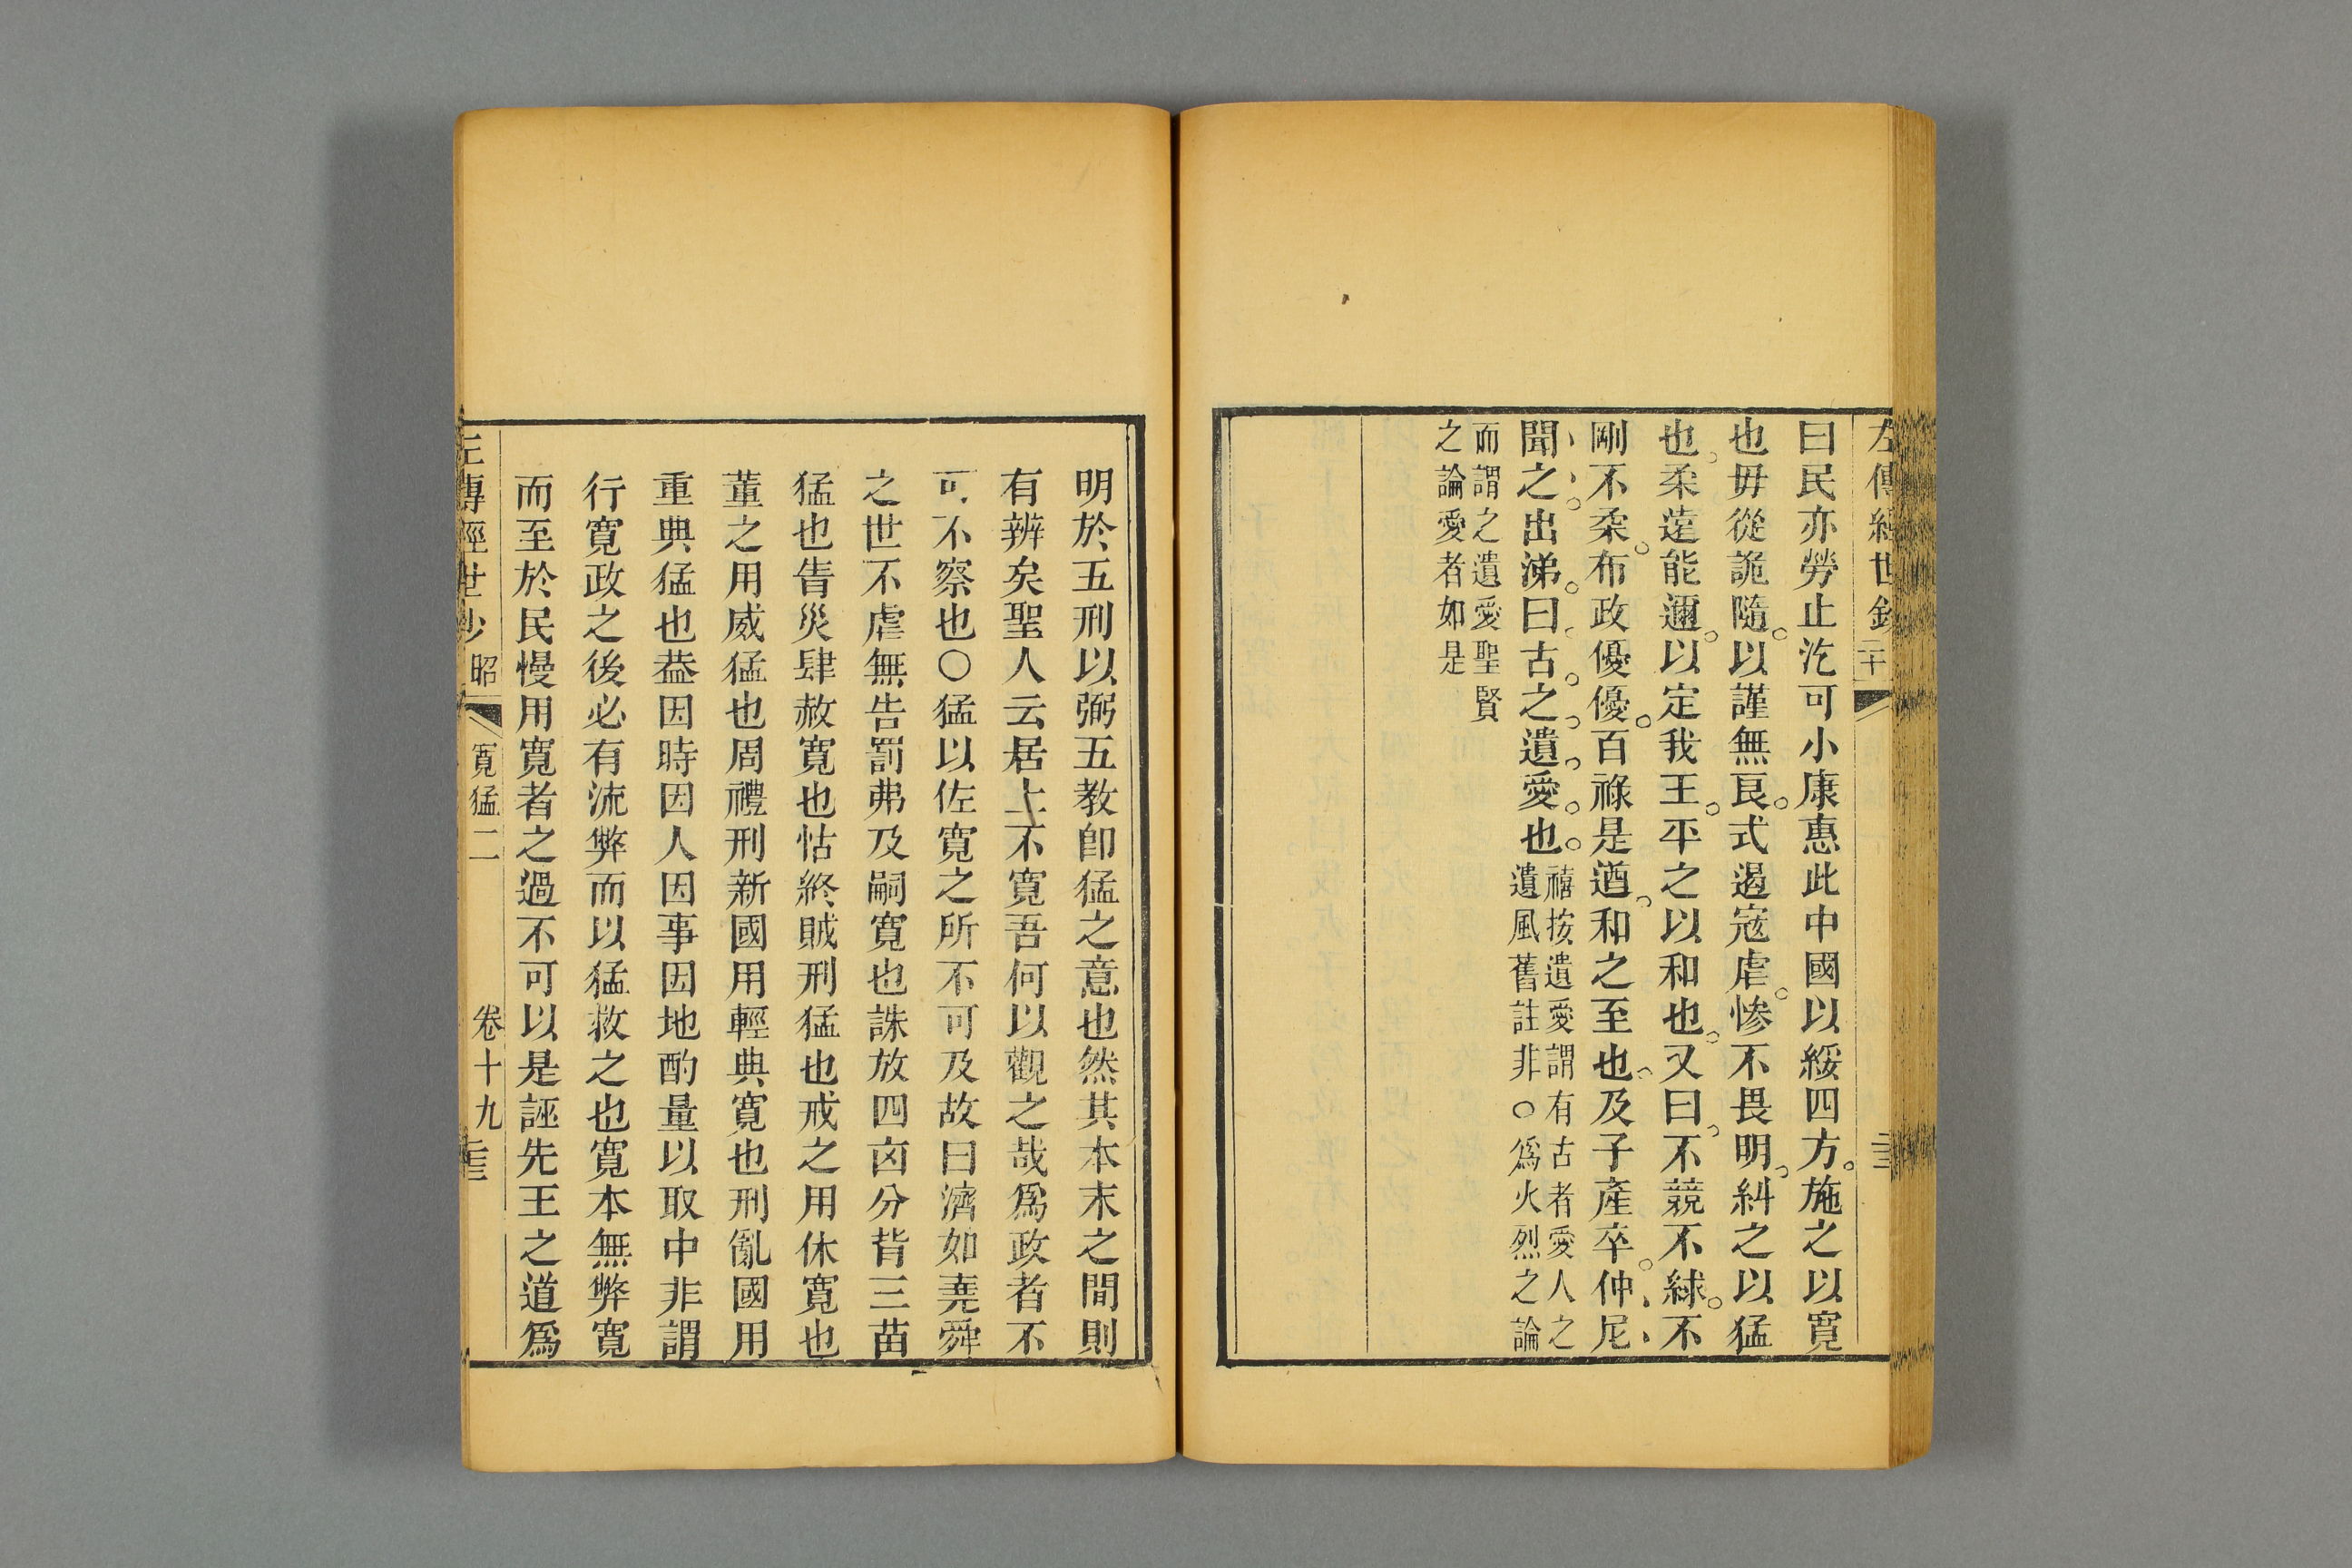 左傳經世鈔 二十
曰民亦勞止汔可小康惠此中國以綏四方施之以寬
也毋從詭隨以謹無良式遏寇虐慘不畏明糾之以猛
也柔遠能邇以定我王平之以和也又曰不競不絿不
剛不柔布政優優百祿是遒和之至也及子產卒仲尼
聞之出涕曰古之遺愛也
禧按遺愛謂有古者愛人之
遺風舊註非〇為火烈之論
而謂之遺愛聖賢
之論愛者如是
明於五刑以弼五教卽猛之意也然其本末之間則
有辨矣聖人云居上不寬吾何以觀之哉爲政者不
可不察也〇猛以佐寬之所不可及故曰濟如堯舜
之世不虐無告罰弗及嗣寬也誅放四凶分背三苗
猛也眚災肆赦寬也怙終賊刑猛也戒之用休寬也
董之用威猛也周禮刑新國用輕典寬也刑亂國用
重典猛也葢因時因人因事因地酌量以取中非謂
行寬政之後必有流弊而以猛救之也寬本無弊寬
而至於民慢用寬者之過不可以是誣先王之道爲
左傳經世鈔 昭 寬猛二 卷十九